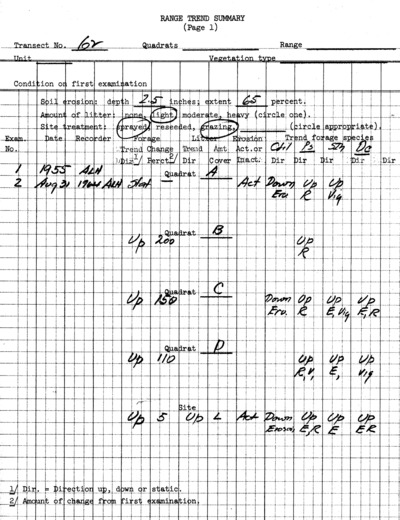 RANGE TREND SUMMARY
(Page 1)
Transect No. 62 Quadrats Range
Unit Vegetation type
Condition on first examination
Soil erosion: depth 2.5 inches; extent 65 percent.
Amount of litter: none, light, moderate, heavy (circle one).
Site treatment: sprayed, reseeded, grazing, (circle appropriate).
Exam. Date Recorder Forage Litter Erosion Trend forage species
No. Trend Change Trend Amt Act.or
Dir 1/ Perct 2/ Dir Cover Inact. Dir Dir Dir Dir
Quadrat A
1 1955 ALN
2 Aug 31 1964 ALN Stat — Act Down Up Up
Eru R Vig
Quadrat B
Up 200 Up
R
Quadrat C
Up 150 Down Up Up Up
Eru. R E, Vig E, R
Quadrat D
Up 110 Up Up Up
R, V, E, Vig
Site
Up 5 Up L Act Down Up Up Up
E, R E E R
1/ Dir. = Direction up, down or static.
2/ Amount of change from first examination.